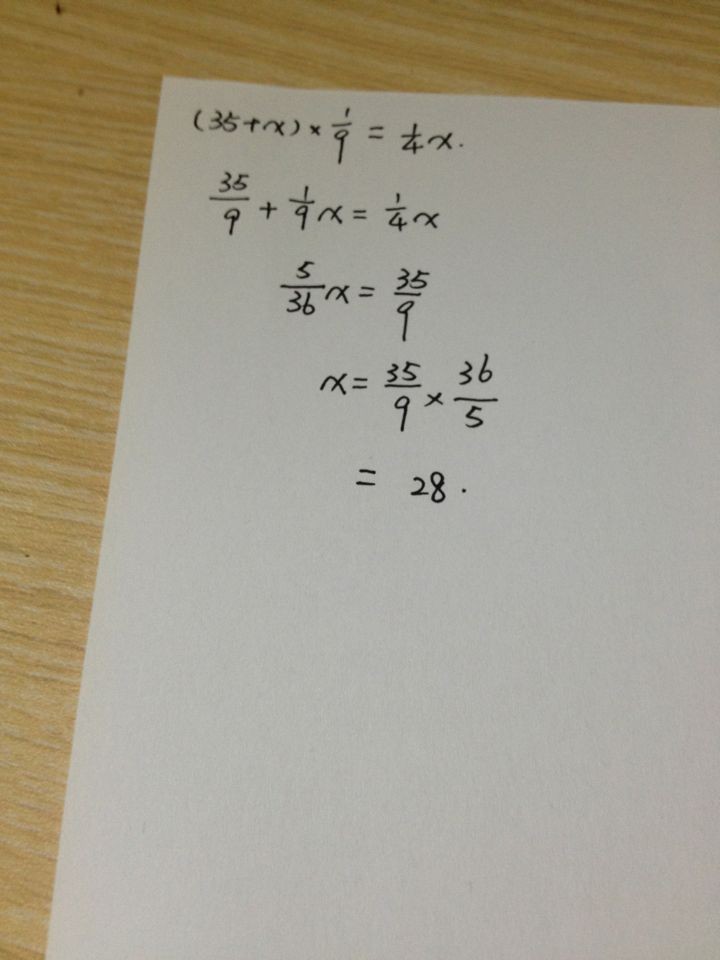 (35+x)×1/9=1/4x.
35/9+1/9x=1/4x
5/36x=35/9
x=35/9×36/5
=28.